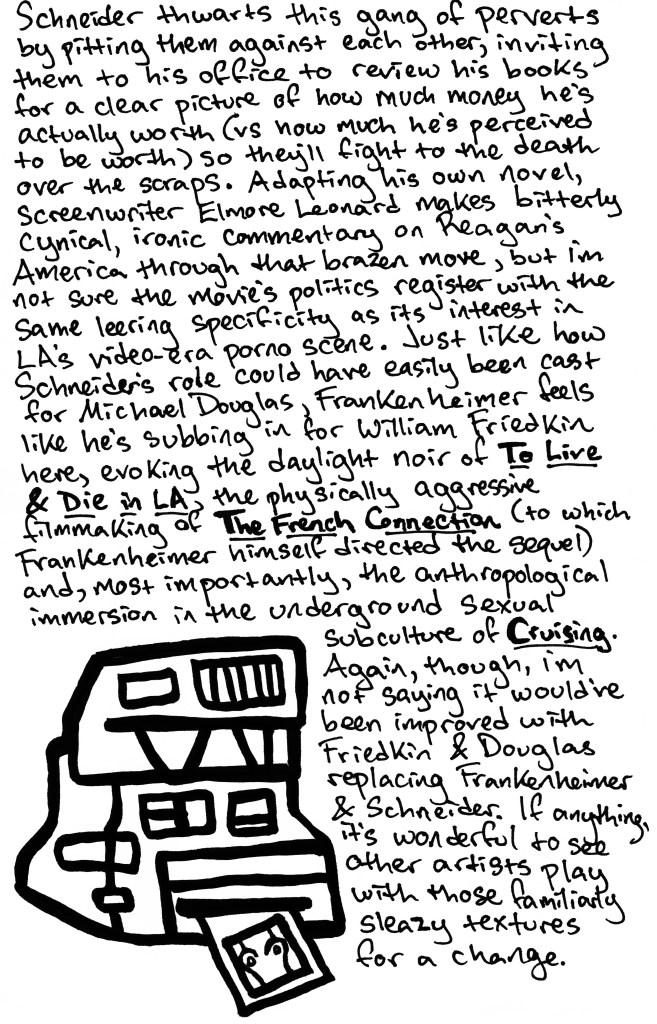 Schneider thwarts this gang of perverts
by pitting them against each other, inviting
them to his office to review his books
for a clear picture of how much money he's
actually worth (vs how much he's perceived
to be worth) so they'll fight to the death
over the scraps. Adapting his own novel,
screenwriter Elmore Leonard makes bitterly
cynical, ironic commentary on Reagan's
America through that brazen move, but i'm
not sure the movie's politics register with the
same leering specificity as its interest in
LA's video-era porno scene. Just like how
Schneider's role could have easily been cast
for Michael Douglas, Frankenheimer feels
like he's subbing in for William Friedkin
here, evoking the daylight noir of To Live
& Die in LA, the physically aggressive
filmmaking of The French Connection (to which
Frankenheimer himself directed the sequel)
and, most importantly, the anthropological
immersion in the underground sexual
subculture of Cruising.
Again, though, i'm
not saying it would've
been improved with
Friedkin & Douglas
replacing Frankenheimer
& Schneider. If anything,
it's wonderful to see
other artists play
with those familiarly
sleazy textures
for a change.